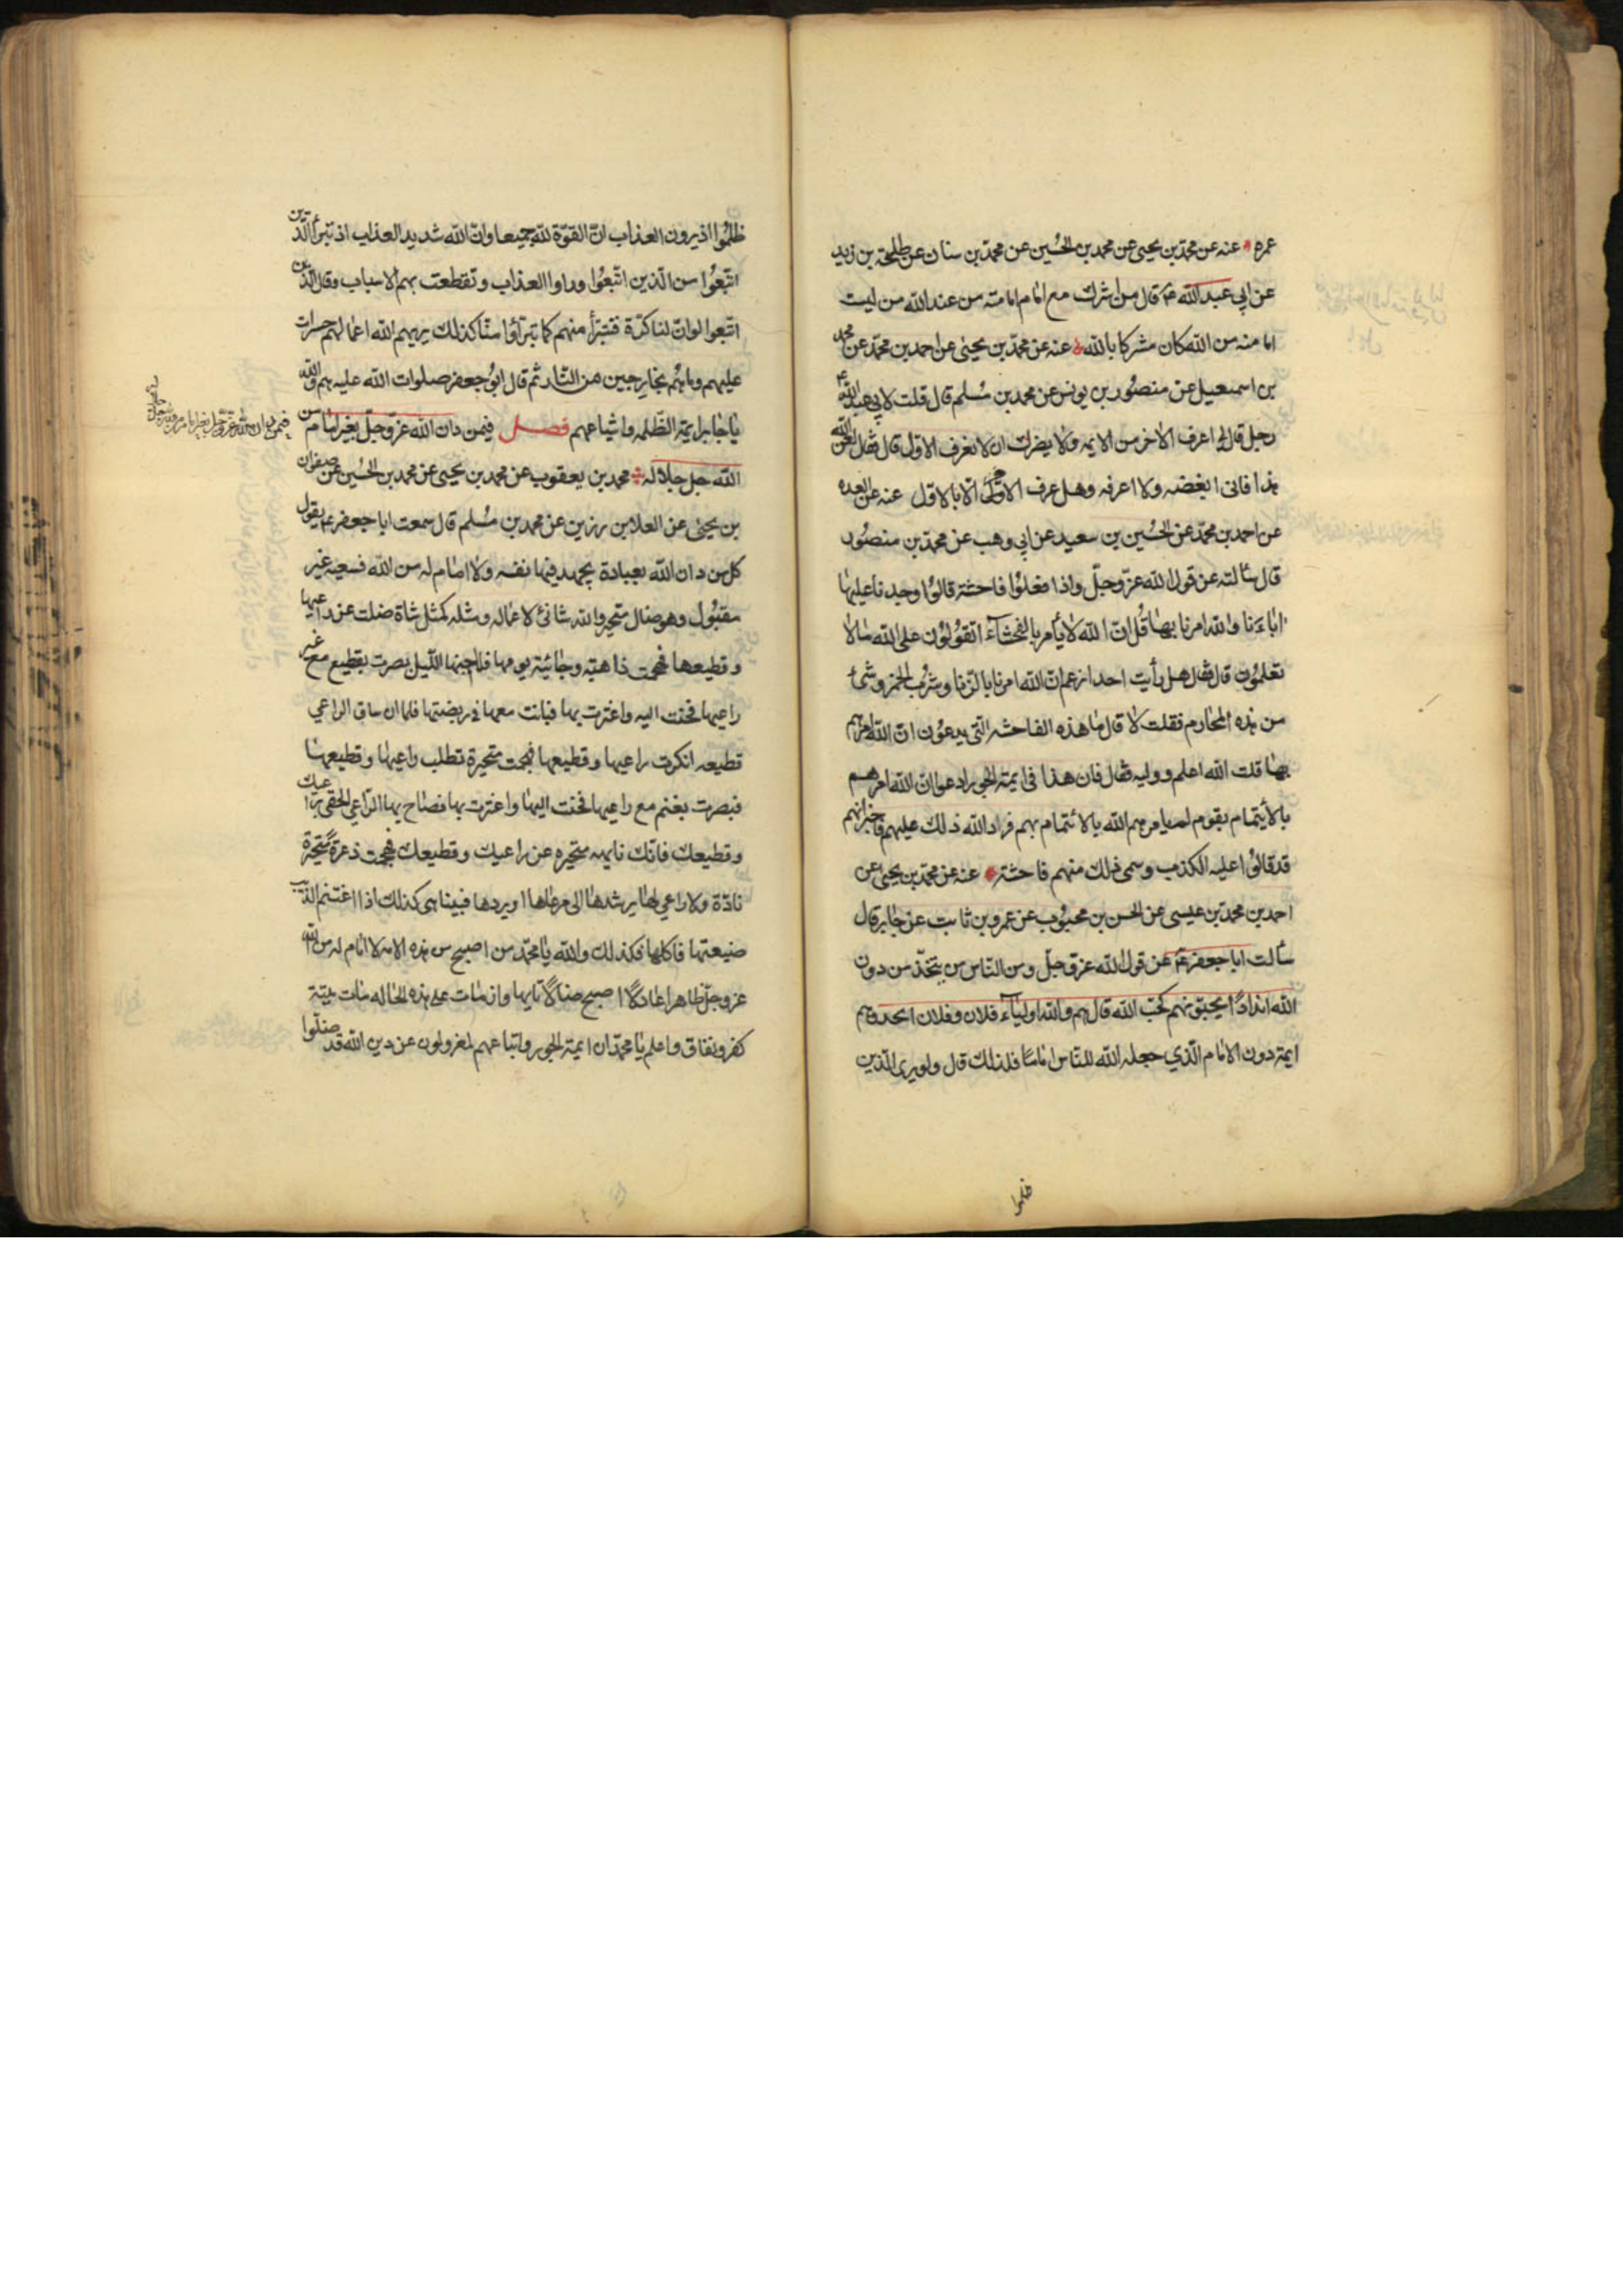 عمره عنه عن محمد بن يحيى عن محمد بن الحسين عن محمد بن سنان عن طلحة بن زيد
عن ابي عبد الله ع قال من اشرك مع امام امامته من عند الله من ليست
امامته من الله كان مشركا بالله عنه عن محمد بن يحيى عن احمد بن محمد عن محمد
بن اسمعيل عن منصور بن يونس عن محمد بن مسلم قال قلت لابي عبد الله ع
رجل قال لي اعرف الاخر من الايمه ولا يضرك ان لا تعرف الاول قال فقال لعن الله
هذا فاني ابغضه ولا اعرفه وهل عرف الاخر الا بالاول عنه عن العده
عن احمد بن محمد عن الحسين بن سعيد عن ابي وهب عن محمد بن منصور
قال سألته عن قول الله عز وجل واذا فعلوا فاحشة قالوا وجدنا عليها
اباءنا والله امرنا بها قل ان الله لا يأمر بالفحشاء اتقولون على الله ما لا
تعلمون قال فقال هل رأيت احدا زعم ان الله امرنا بالزنا وشرب الخمر وشئ
من هذه المحارم فقلت لا قال ما هذه الفاحشة التي يدعون ان الله امرهم
بها قلت الله اعلم ووليه فقال فان هذا في ايمة الجور ادعوا ان الله امرهم
بالأيتمام بقوم لم يامرهم الله بالائتمام بهم فراد الله ذلك عليهم فاخبر انهم
قد قالوا عليه الكذب وسمى ذلك منهم فاحشة عنه عن محمد بن يحيى عن
احمد بن محمد بن عيسى عن الحسن بن محبوب عن عمرو بن ثابت عن جابر قال
سألت ابا جعفر ع عن قول الله عز وجل ومن الناس من يتخذ من دون
الله اندادا يحبونهم كحب الله قال هم والله اولياء فلان وفلان اتخذوهم
ايمة دون الامام الذي جعله الله للناس اماما فلذلك قال ولو يرى الذين
ظلموا
ظلموا اذ يرون العذاب ان القوة لله جميعا وان الله شديد العذاب اذ تبرأ الذين
اتبعوا من الذين اتبعوا وراوا العذاب وتقطعت بهم الاسباب وقال الذين
اتبعوا لو ان لنا كرة فنتبرأ منهم كما تبرأوا منا كذلك يريهم الله اعمالهم حسرات
عليهم وما هم بخارجين من النار ثم قال ابو جعفر صلوات الله عليه هم والله
يا جابر ايمة الظلمه واشياعهم فصل فيمن دان الله عز وجل بغير امام من
الله جل جلاله محمد بن يعقوب عن محمد بن يحيى عن محمد بن الحسين عن صفوان
بن يحيى عن العلا بن رزين عن محمد بن مسلم قال سمعت ابا جعفر ع يقول
كل من دان الله بعبادة يجهد فيها نفسه ولا امام له من الله فسعيه غير
مقبول وهو ضال متحير والله شانئ لاعماله ومثله كمثل شاة ضلت عن راعيها
وقطيعها فهجمت ذاهبة وجائية يومها فلما جنها الليل بصرت بقطيع مع غير
راعيها فحنت اليه واغترت بها فباتت معها في ربضتها فلما ان ساق الراعي
قطيعه انكرت راعيها وقطيعها فهجمت متحيرة تطلب راعيها وقطيعها
فبصرت بغنم مع راعيها فحنت اليها واغترت بها فصاح بها الراعي الحقي براعيك
وقطيعك فانك تايهه متحيره عن راعيك وقطيعك فهجمت ذعرة متحيرة
نادة ولا راعي لها يرشدها الى مرعاها او يردها فبينا هي كذلك اذا اغتنم الذيب
ضيعتها فاكلها فكذلك والله يا محمد من اصبح من هذه الامه لا امام له من الله
عز وجل ظاهرا عادلا اصبح ضالا تايها وان مات على هذه الحاله مات ميتة
كفر ونفاق واعلم يا محمد ان ايمة الجور واتباعهم لمعزولون عن دين الله قد ضلوا
فيمن دان الله عز وجل بغير امام من الله جل جلاله